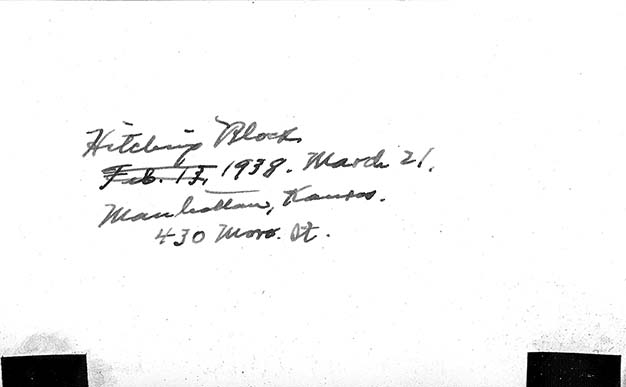 Hitching Block
Feb. 13, 1938. March 21.
Manhattan, Kansas.
430 Moro. St.